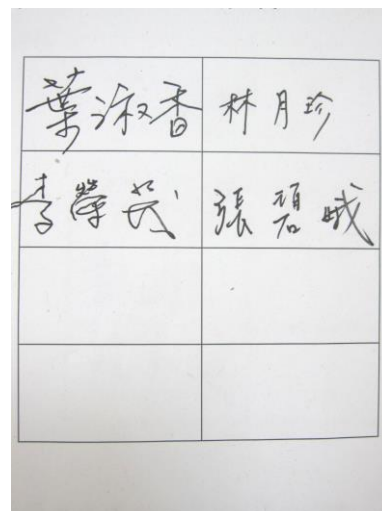 葉淑香 林月珍
李榮茂 張碧娥